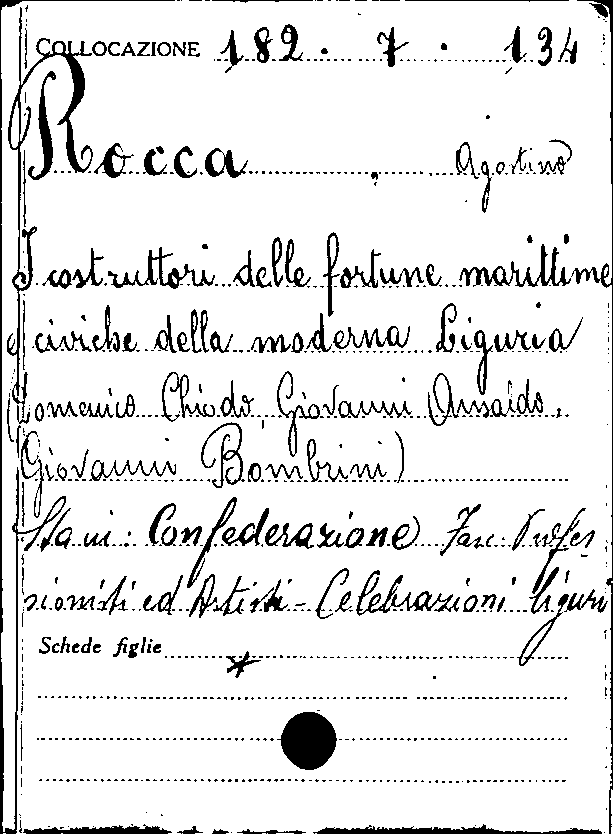 COLLOCAZIONE 182. 7. 134
Rocca, Agostino
I costruttori delle fortune marittime
e civiche della moderna Liguria
(Domenico Chiodo, Giovanni Ansaldo,
Giovanni Bombrini)
Sta in: Confederazione Fasc. Profes
sionisti ed Artisti - Celebrazioni liguri
Schede figlie
*